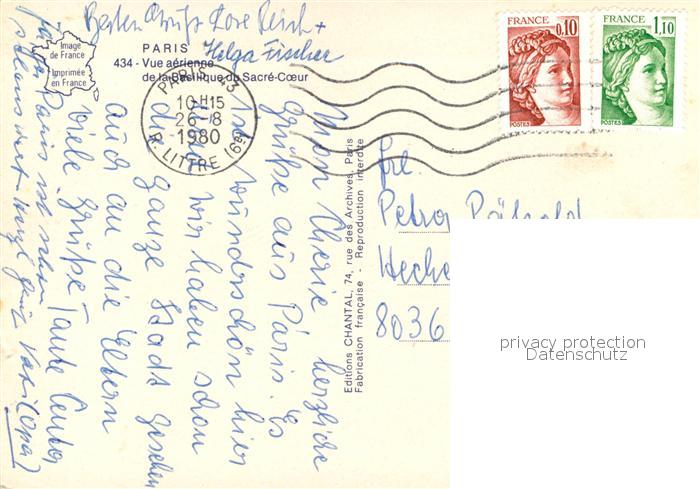 Besten Gruß Lore Reich +
Helga Fischer
Image
de France
Imprimée
en France
PARIS
434 - Vue aérienne
de la Basilique du Sacré-Cœur
PARIS 43
10 H 15
26 - 8
1980
R. LITTRE (6e)
FRANCE
0,10
POSTES
FRANCE
1,10
POSTES
Mon Cherie herzliche
Grüße aus Paris. Es
ist wunderschön hier
wir haben schon
die ganze Stadt gesehen
auch an die Eltern
viele Grüße Tante
Paris ist schon
Editions CHANTAL, 74, rue des Archives, Paris
Fabrication française - Reproduction interdite
Frl.
Petra
Heche
8036
privacy protection
Datenschutz